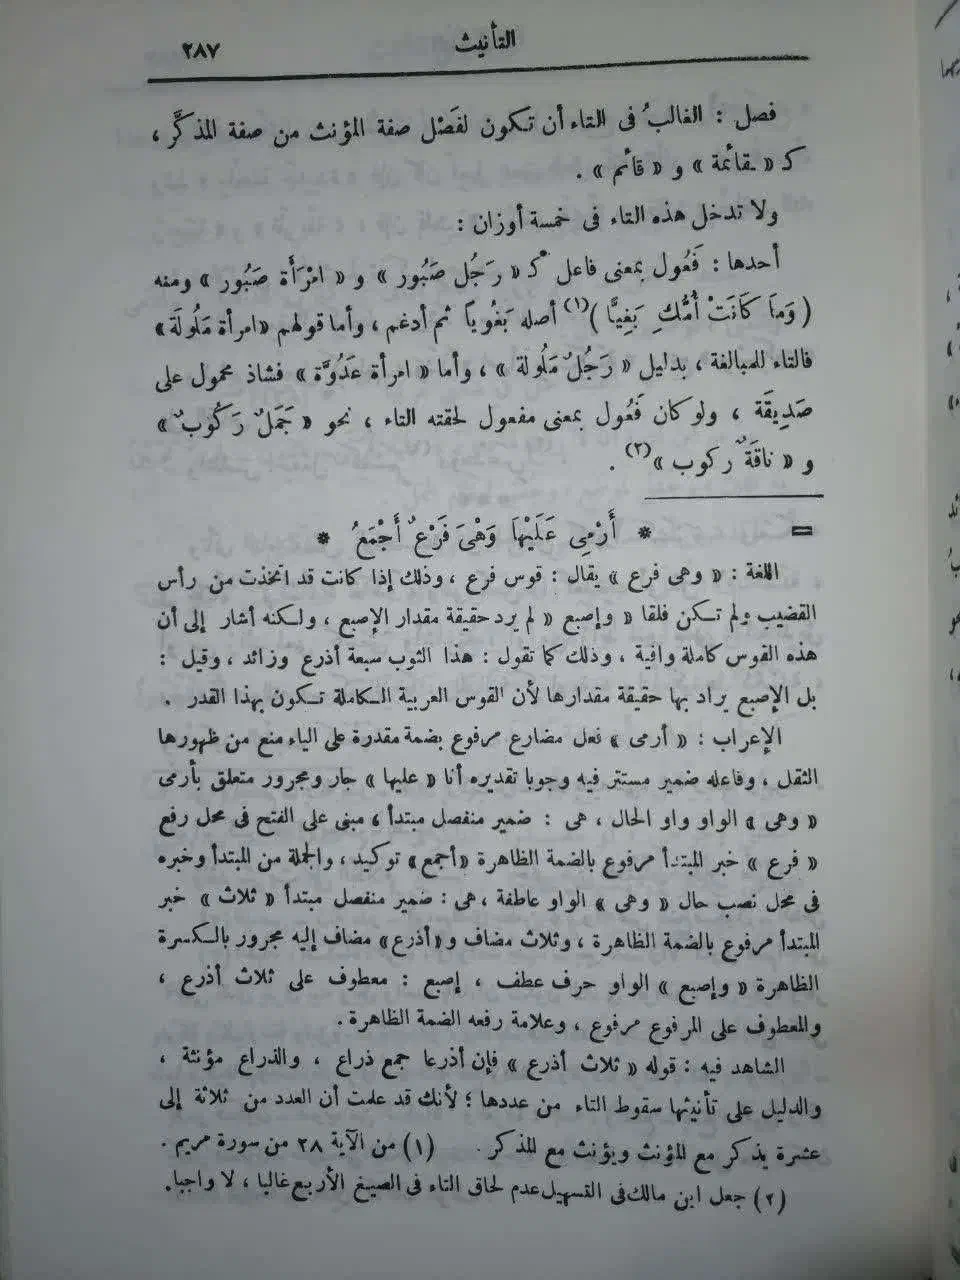 التأنيث ٢٨٧
فصل : الغالبُ فى التاء أن تكون لفَصْل صفة المؤنث من صفة المذكَّر ،
كـ « ـقائمة » و « قائم » .
ولا تدخل هذه التاء فى خمسة أوزان :
أحدها : فَعُول بمعنى فاعل كـ « رَجُل صَبُور » و « امْرَأَة صَبُور » ومنه
( وَمَا كَانَتْ أُمُّكِ بَغِيًّا )(١) أصله بَغُوياً ثم أدغم ، وأما قولهم «امرأة مَلُولَة»
فالتاء للمبالغة ، بدليل « رَجُلٌ مَلُولة » ، وأما « امرأة عَدُوَّة » فشاذ محمول على
صَدِيقَة ، ولو كان فَعُول بمعنى مفعول لحقته التاء ، نحو « جَمَلٌ رَكُوبٌ »
و « ناقَةٌ ركوب »(٢) .
= * أَرْمِى عَلَيْهَا وَهْىَ فَرْعٌ أَجْمَعُ *
اللغة : « وهى فرع » يقال : قوس فرع ، وذلك إذا كانت قد اتخذت من رأس
القضيب ولم تكن فلقا « وإصبع « لم يرد حقيقة مقدار الإصبع ، ولكنه أشار إلى أن
هذه القوس كاملة وافية ، وذلك كما تقول : هذا الثوب سبعة أذرع وزائد ، وقيل :
بل الإصبع يراد بها حقيقة مقدارها لأن القوس العربية الكاملة تكون بهذا القدر .
الإعراب : « أرمى » فعل مضارع مرفوع بضمة مقدرة على الياء منع من ظهورها
الثقل ، وفاعله ضمير مستتر فيه وجوبا تقديره أنا « عليها » جار ومجرور متعلق بأرمى
« وهى » الواو واو الحال ، هى : ضمير منفصل مبتدأ ، مبنى على الفتح فى محل رفع
« فرع » خبر المبتدأ مرفوع بالضمة الظاهرة «أجمع» توكيد ، والجملة من المبتدأ وخبره
فى محل نصب حال « وهى » الواو عاطفة ، هى : ضمير منفصل مبتدأ « ثلاث » خبر
المبتدأ مرفوع بالضمة الظاهرة ، وثلاث مضاف و«أذرع» مضاف إليه مجرور بالكسرة
الظاهرة « وإصبع » الواو حرف عطف ، إصبع : معطوف على ثلاث أذرع ،
والمعطوف على المرفوع مرفوع ، وعلامة رفعه الضمة الظاهرة .
الشاهد فيه : قوله « ثلاث أذرع » فإن أذرعا جمع ذراع ، والذراع مؤنثة ،
والدليل على تأنيثها سقوط التاء من عددها ؛ لأنك قد علمت أن العدد من ثلاثة إلى
عشرة يذكر مع المؤنث ويؤنث مع المذكر . (١) من الآية ٢٨ من سورة مريم .
(٢) جعل ابن مالك فى التسهيل عدم لحاق التاء فى الصيغ الأربع غالبا ، لا واجبا .